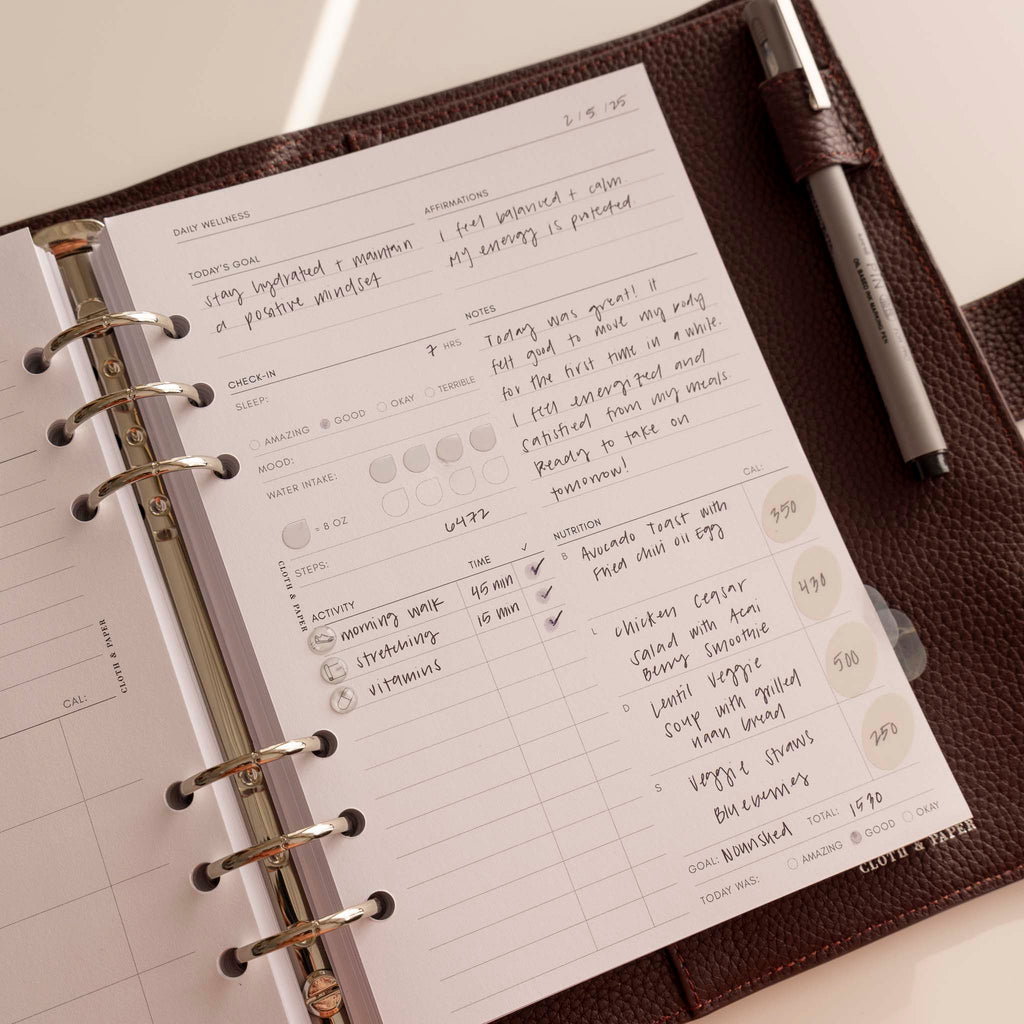 2/5/25
DAILY WELLNESS
TODAY'S GOAL
stay hydrated + maintain
a positive mindset
AFFIRMATIONS
I feel balanced + calm.
My energy is protected.
CHECK-IN
SLEEP: 7 HRS
AMAZING GOOD OKAY TERRIBLE
MOOD:
WATER INTAKE:
= 8 OZ
STEPS: 6472
NOTES
Today was great! It
felt good to move my body
for the first time in a while.
I feel energized and
satisfied from my meals.
Ready to take on
tomorrow!
CLOTH & PAPER
ACTIVITY TIME ✓
morning walk 45 min ✓
stretching 15 min ✓
vitamins ✓
NUTRITION CAL:
B Avocado Toast with
Fried chili oil Egg
350
L chicken Ceasar
salad with Acai
Berry Smoothie
430
D Lentil veggie
soup with grilled
naan bread
500
S veggie straws
Blueberries
250
GOAL: Nourished TOTAL: 1530
TODAY WAS: AMAZING GOOD OKAY
CLOTH & PAPER
CLOTH & PAPER
CAL:
OIL BASED INK MARKING PEN